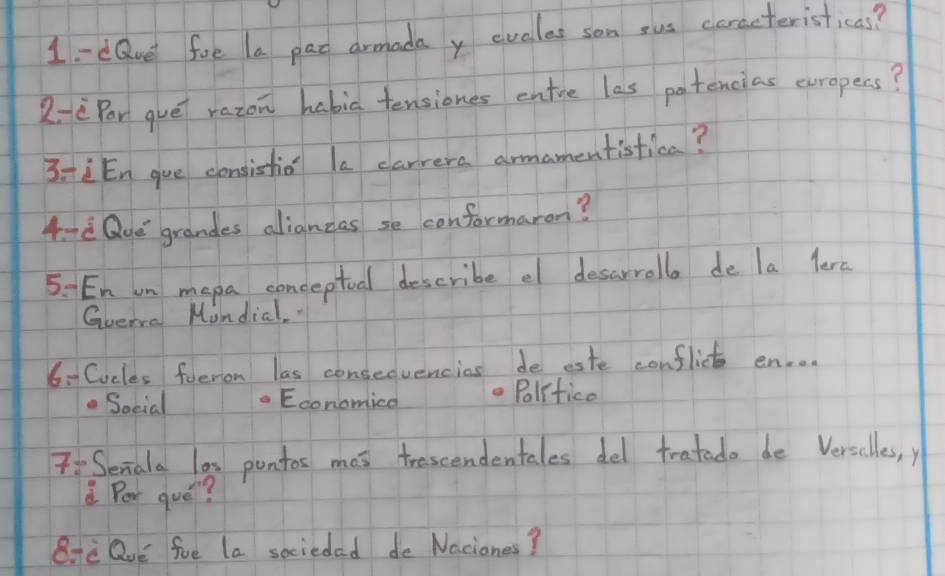 1.-¿Qué fue la paz armada y cuales son sus caracteristicas?
2.-¿Por qué razón habia tensiones entre las potencias europeas?
3.-¿En que consistió la carrera armamentistica?
4.-¿Qué grandes alianzas se conformaron?
5.-En un mapa conceptual describe el desarrollo de la 1era
Guerra Mundial.
6.-Cuales fueron las consecuencias de este conflicto en...
• Social • Economico • Político
7.-Señala los puntos más trascendentales del tratado de Versalles, y
¿Por qué?
8.-¿Qué fue la sociedad de Naciones?